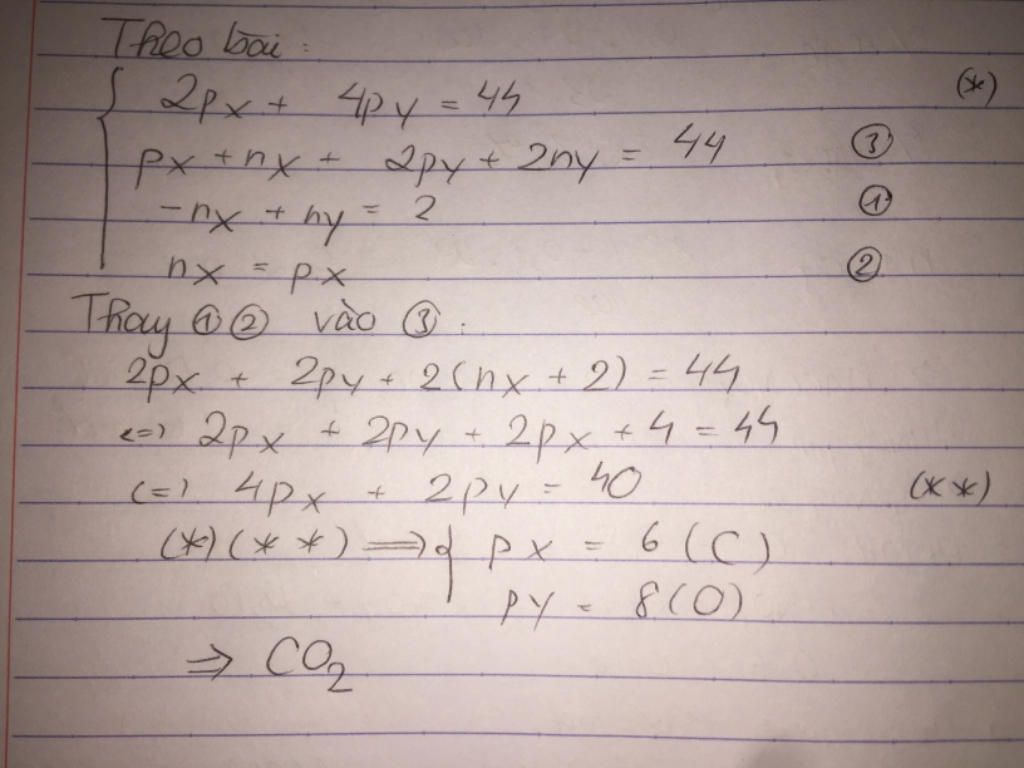 Theo bài :
2px + 4py = 44 (*)
px + nx + 2py + 2ny = 44 ③
-nx + ny = 2 ①
nx = px ②
Thay ① ② vào ③ :
2px + 2py + 2(nx + 2) = 44
<=> 2px + 2py + 2px + 4 = 44
(=) 4px + 2py = 40 (**)
(*)(**) => { px = 6 (C)
py = 8 (O)
=> CO₂